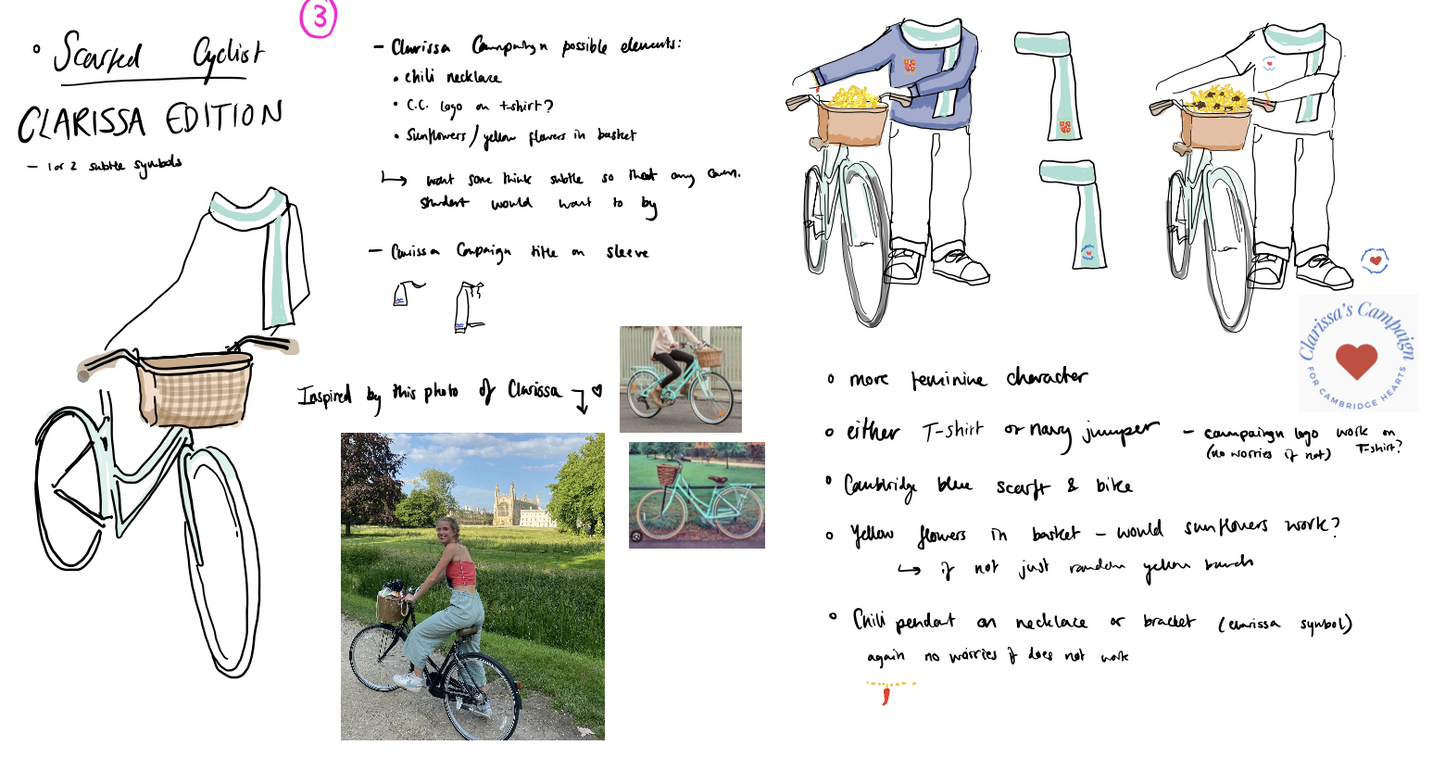 3
• Scarfed Cyclist
CLARISSA EDITION
– 1 or 2 subtle symbols
– Clarissa Campaign possible elements:
• chili necklace
• C.C. logo on t-shirt?
• Sunflowers/yellow flowers in basket
↳ want some think subtle so that any cam.
student would want to by
– Clarissa Campaign title on sleeve
Inspired by this photo of Clarissa
Clarissa's Campaign
FOR CAMBRIDGE HEARTS
• more feminine character
• either T-shirt or navy jumper – campaign logo work on
(no worries if not) T-shirt?
• Cambridge blue scarf & bike
• Yellow flowers in basket – would sunflowers work?
↳ if not just random yellow bunch
• Chili pendant on necklace or bracket (clarissa symbol)
again no worries if does not work